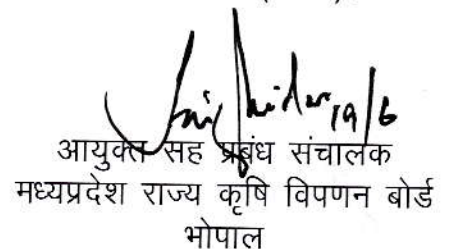 19/6
आयुक्त सह प्रबंध संचालक
मध्यप्रदेश राज्य कृषि विपणन बोर्ड
भोपाल